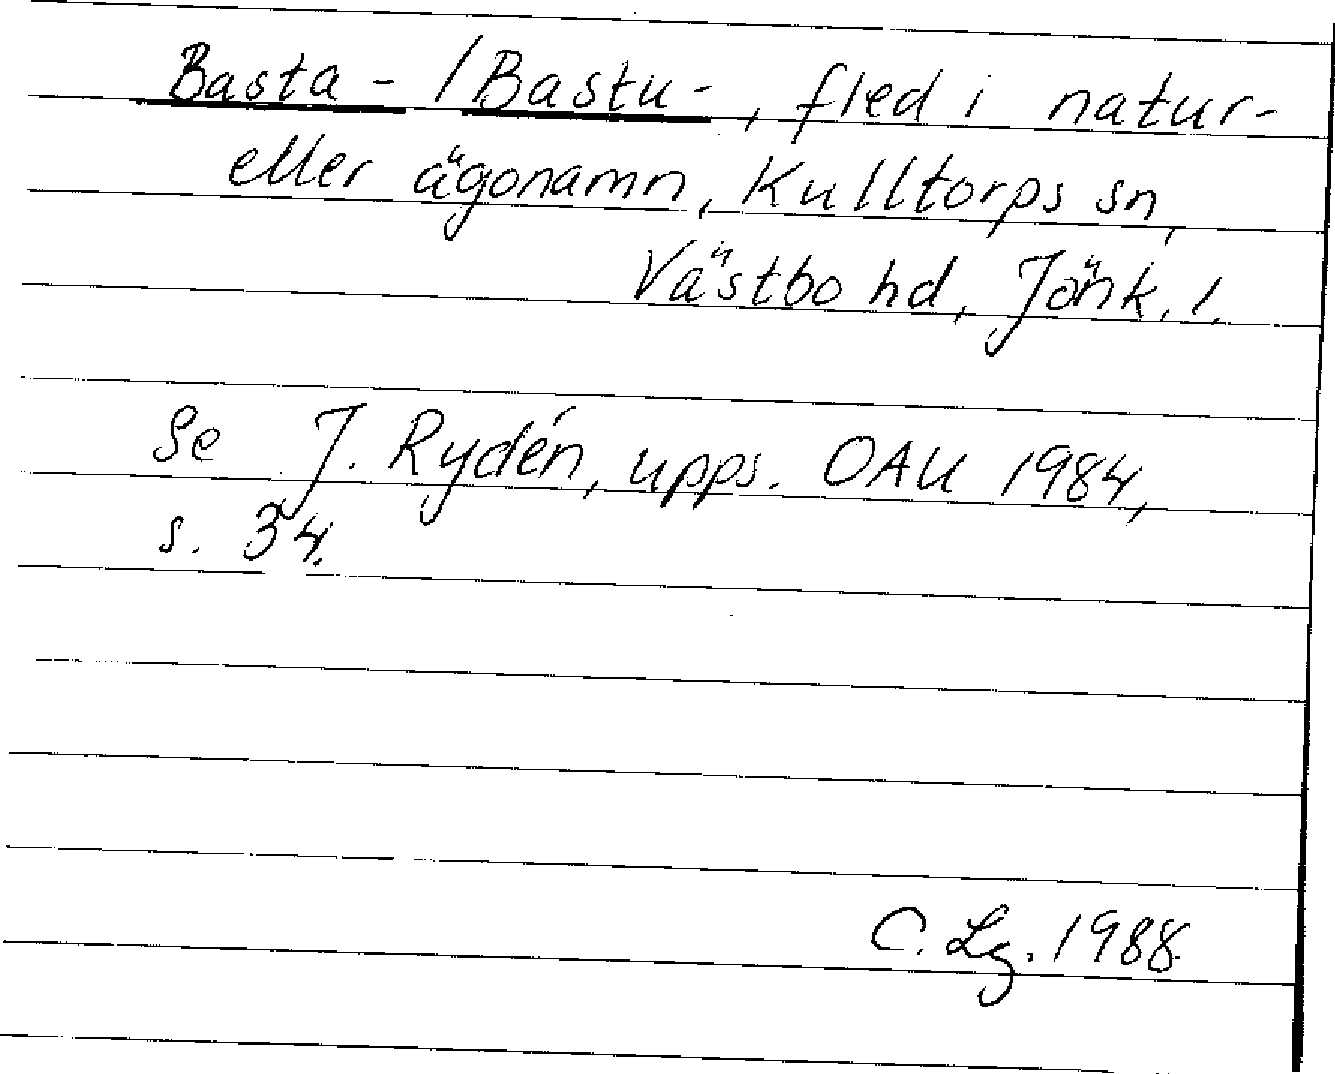 Basta- / Bastu-, fled i natur-
eller ägonamn, Kulltorps sn,
Västbo hd, Jönk. l.
Se J. Rydén, upps. OAU 1984,
s. 34.
C. Lg. 1988